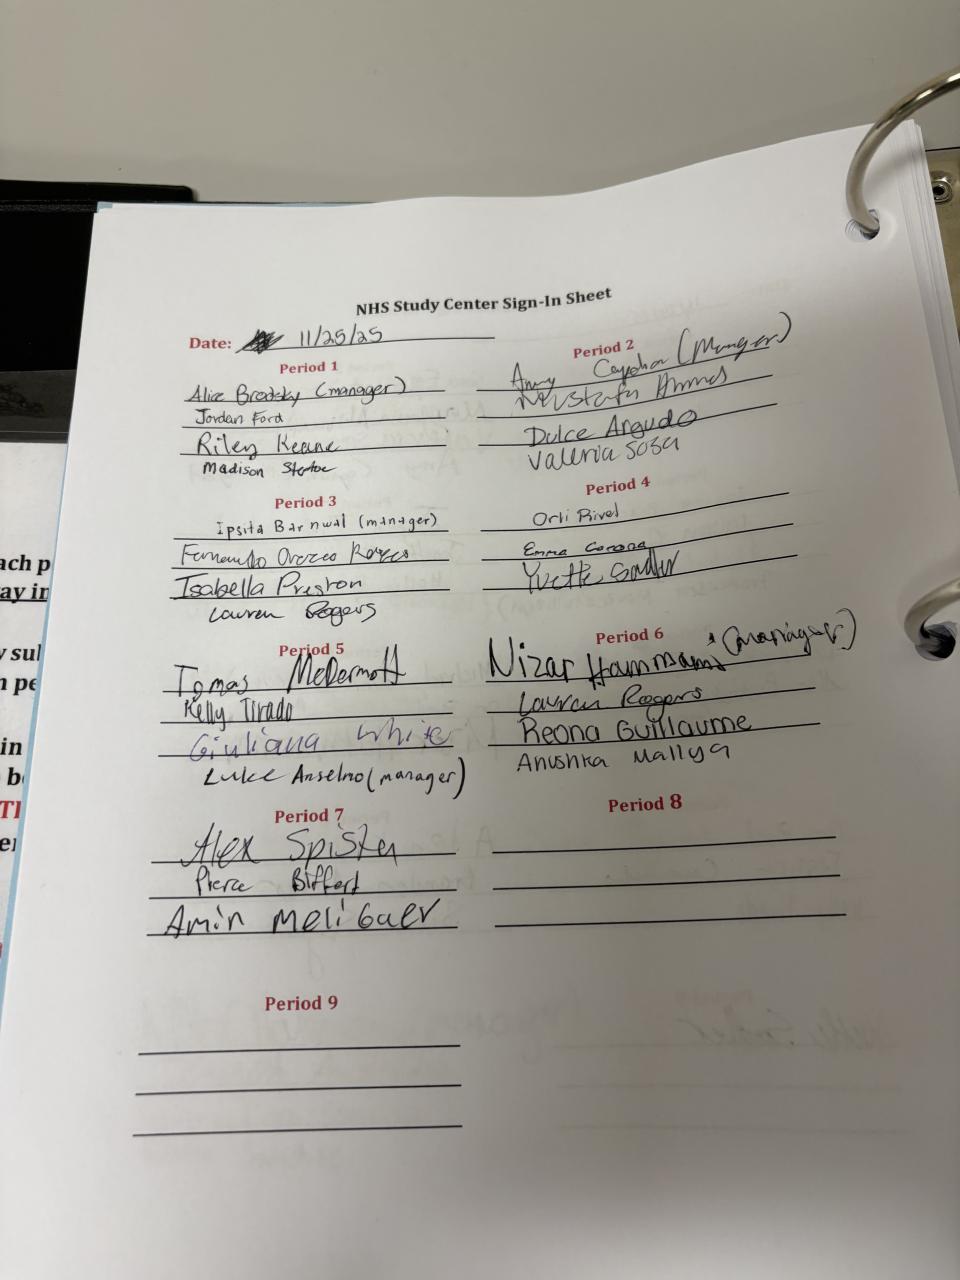 NHS Study Center Sign-In Sheet
Date: 11/25/25
Period 1
Alice Brodsky (manager)
Jordan Ford
Riley Keane
Madison
Period 2
Amy (Manger)
Mustafa Ahmed
Dulce Argudo
Valeria Sosa
Period 3
Ipsita Barnwal (manager)
Fernando Orozco
Isabella Preston
Lauren Rogers
Period 4
Orli Rivel
Emma Corona
Yvette
Period 5
Tomas McDermott
Kelly Tirado
Giuliana White
Luke Anselmo (manager)
Period 6
Nizar Hammami (manager)
Lauren Rogers
Reona Guillaume
Anushka Mallya
Period 7
Alex
Pierce
Amin
Period 8
Period 9
ach p
ay in
y sul
n pe
in
b
TI
er